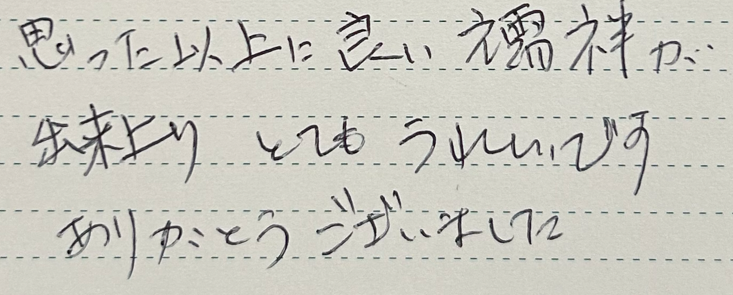 思った以上に良い襦袢が
出来上り とても うれしいです
ありがとう ございました